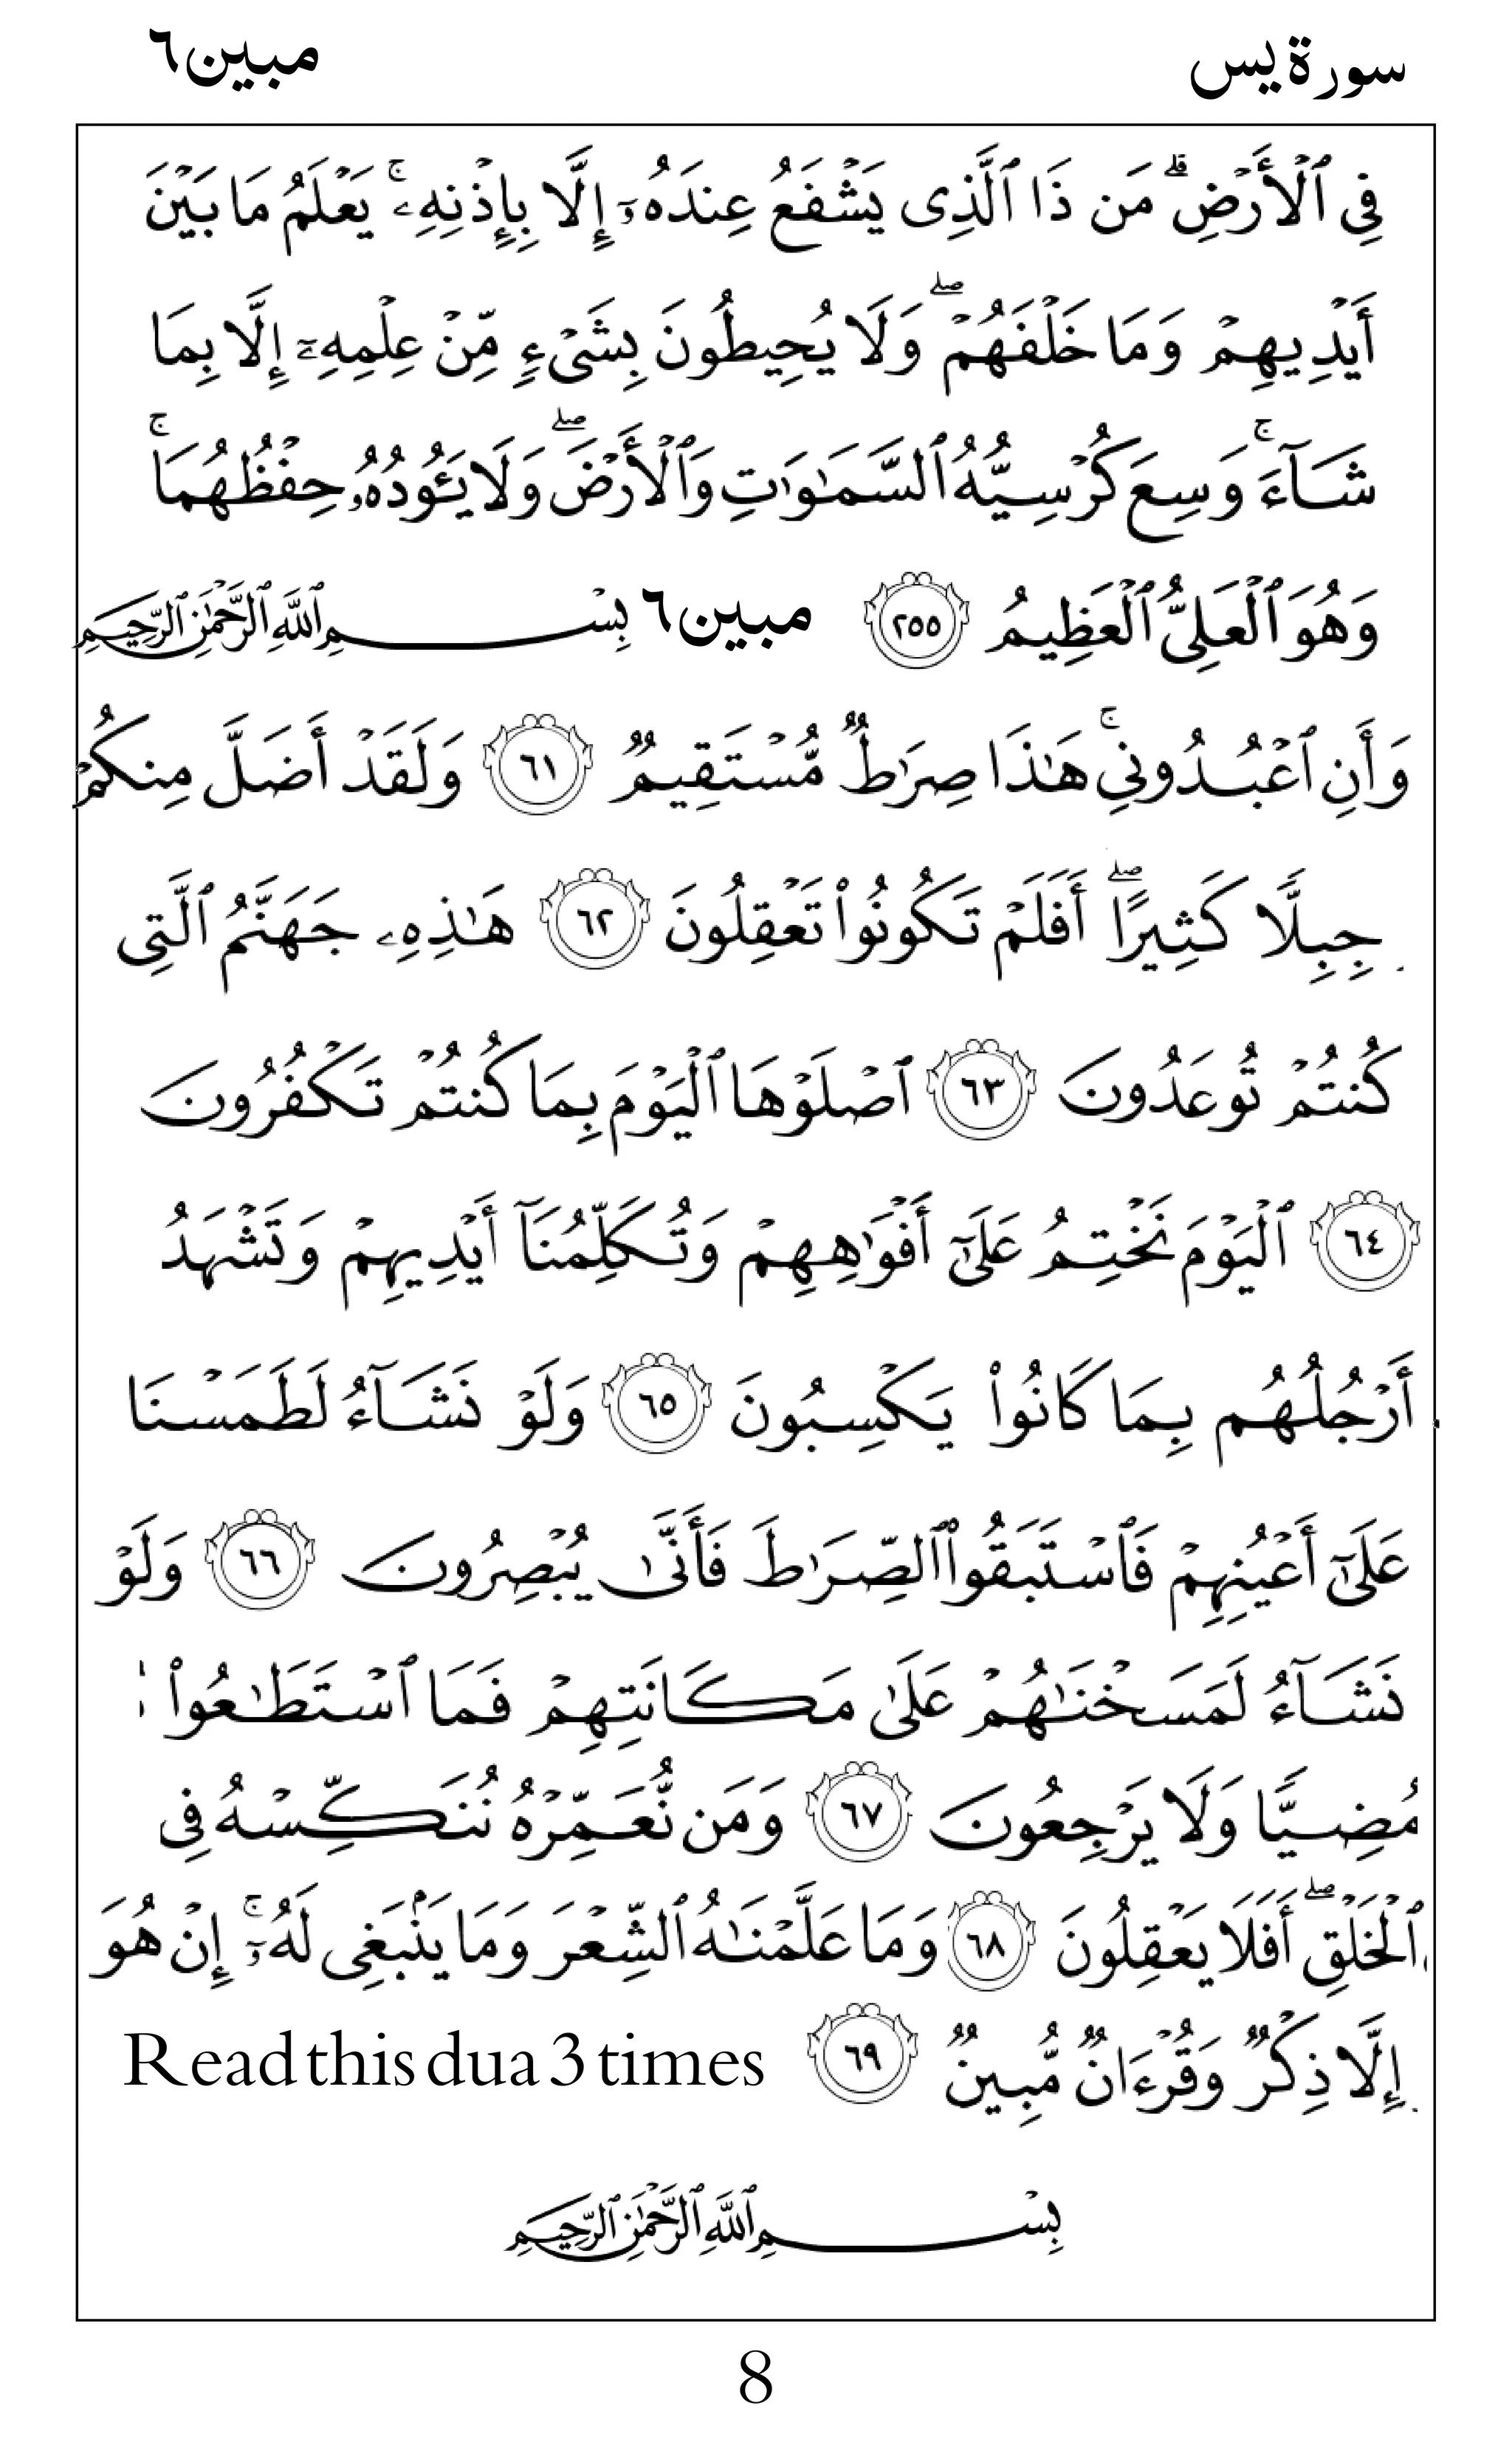 سورة يس مبين٦
فِي ٱلۡأَرۡضِۗ مَن ذَا ٱلَّذِي يَشۡفَعُ عِندَهُۥٓ إِلَّا بِإِذۡنِهِۦۚ يَعۡلَمُ مَا بَيۡنَ
أَيۡدِيهِمۡ وَمَا خَلۡفَهُمۡۖ وَلَا يُحِيطُونَ بِشَيۡءٖ مِّنۡ عِلۡمِهِۦٓ إِلَّا بِمَا
شَآءَۚ وَسِعَ كُرۡسِيُّهُ ٱلسَّمَٰوَٰتِ وَٱلۡأَرۡضَۖ وَلَا يَـُٔودُهُۥ حِفۡظُهُمَاۚ
وَهُوَ ٱلۡعَلِيُّ ٱلۡعَظِيمُ ٢٥٥ مبين٦ بِسۡمِ ٱللَّهِ ٱلرَّحۡمَٰنِ ٱلرَّحِيمِ
وَأَنِ ٱعۡبُدُونِيۚ هَٰذَا صِرَٰطٞ مُّسۡتَقِيمٞ ٦١ وَلَقَدۡ أَضَلَّ مِنكُمۡ
جِبِلّٗا كَثِيرًاۖ أَفَلَمۡ تَكُونُواْ تَعۡقِلُونَ ٦٢ هَٰذِهِۦ جَهَنَّمُ ٱلَّتِي
كُنتُمۡ تُوعَدُونَ ٦٣ ٱصۡلَوۡهَا ٱلۡيَوۡمَ بِمَا كُنتُمۡ تَكۡفُرُونَ
٦٤ ٱلۡيَوۡمَ نَخۡتِمُ عَلَىٰٓ أَفۡوَٰهِهِمۡ وَتُكَلِّمُنَآ أَيۡدِيهِمۡ وَتَشۡهَدُ
أَرۡجُلُهُم بِمَا كَانُواْ يَكۡسِبُونَ ٦٥ وَلَوۡ نَشَآءُ لَطَمَسۡنَا
عَلَىٰٓ أَعۡيُنِهِمۡ فَٱسۡتَبَقُواْ ٱلصِّرَٰطَ فَأَنَّىٰ يُبۡصِرُونَ ٦٦ وَلَوۡ
نَشَآءُ لَمَسَخۡنَٰهُمۡ عَلَىٰ مَكَانَتِهِمۡ فَمَا ٱسۡتَطَٰعُواْ
مُضِيّٗا وَلَا يَرۡجِعُونَ ٦٧ وَمَن نُّعَمِّرۡهُ نُنَكِّسۡهُ فِي
ٱلۡخَلۡقِۖ أَفَلَا يَعۡقِلُونَ ٦٨ وَمَا عَلَّمۡنَٰهُ ٱلشِّعۡرَ وَمَا يَنۢبَغِي لَهُۥٓۚ إِنۡ هُوَ
إِلَّا ذِكۡرٞ وَقُرۡءَانٞ مُّبِينٞ ٦٩ Read this dua 3 times
بِسۡمِ ٱللَّهِ ٱلرَّحۡمَٰنِ ٱلرَّحِيمِ
8